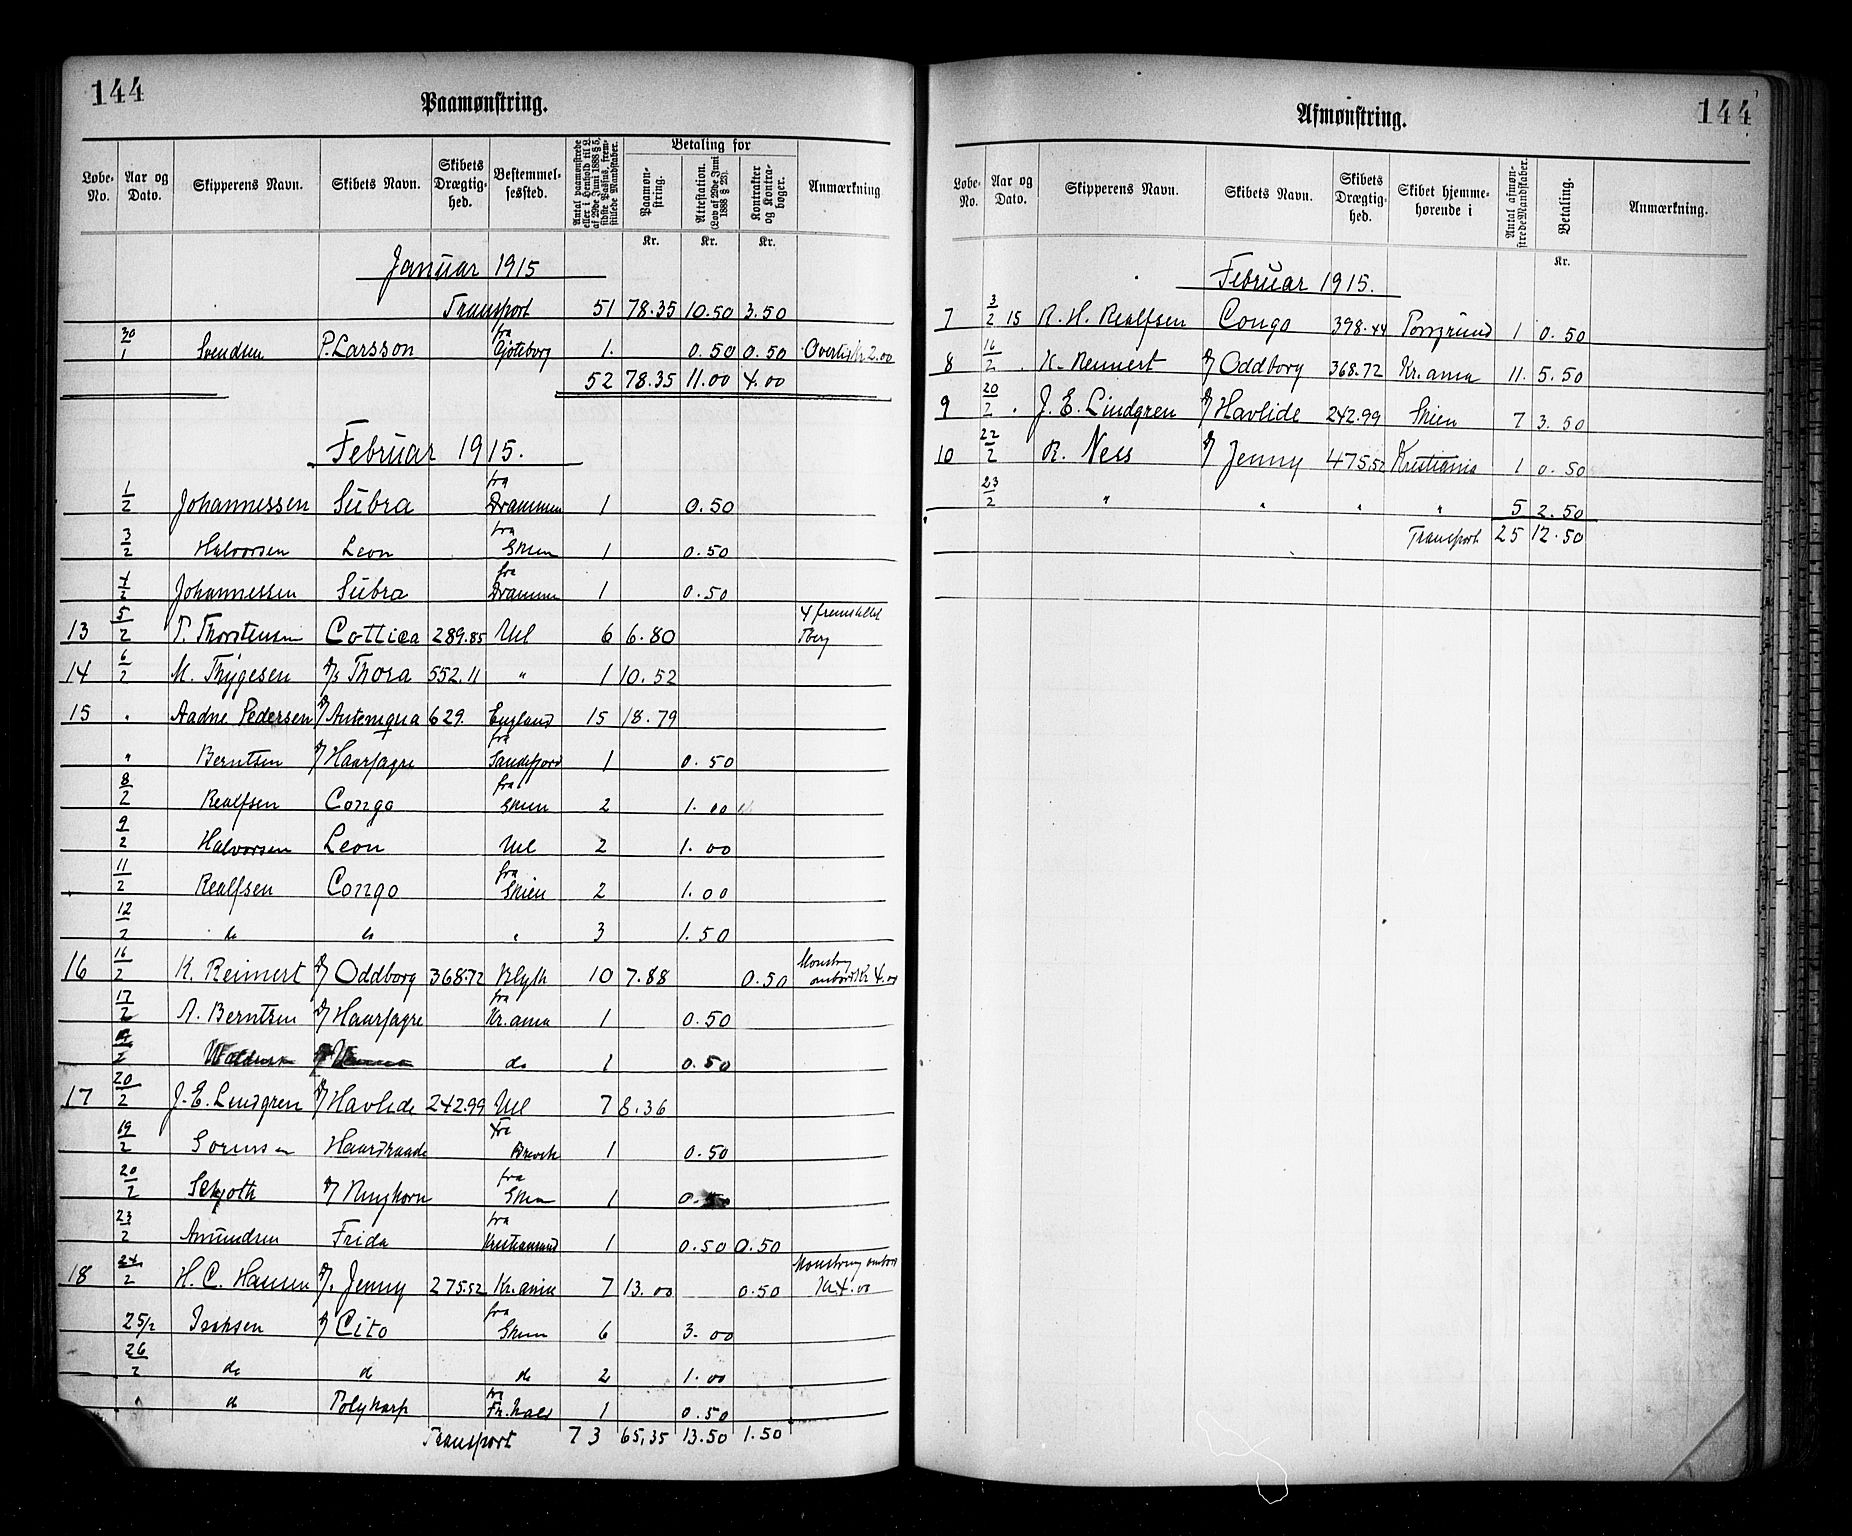 144
Paamønstring.
Løbe-No. Aar og Dato. Skipperens Navn. Skibets Navn. Skibets Drægtighed. Bestemmelsessted. Antal paamønstrede eller i Henhold til L. af 29de Juni 1888 § 5, sidste Passus, fremstillede Mandskaber. Betaling for Paamønstring. Attestation. (Lov af 29de Juni 1888 § 23). Kontrakter og Kontrabøger. Anmærkning
Kr. Kr. Kr.
Januar 1915
Transport 51 78.35 10.50 3.50
30/1 Svendsen P. Larsson fra Gøteborg 1. 0.50 0.50 Overtid kr 2.00
52 78.35 11.00 4.00
Februar 1915.
1/2 Johannessen Subra fra Drammen 1 0.50
3/2 Halvorsen Leon fra Skien 1 0.50
4/2 Johannessen Subra fra Drammen 1 0.50
13 5/2 T. Thorstensen Cottica 289.85 Uel 6 6.80 4 fremstillet Tberg
14 6/2 M. Thygesen D/S Thora 552.11 " 1 10.52
15 " Aadne Pedersen Antemqua 629. England 15 18.79
" Berntsen Haarfagre fra Sandefjord 1 0.50
8/2 Realfsen Congo fra Skien 2 1.00
9/2 Halvorsen Leon Uel 2 1.00
11/2 Realfsen Congo fra Skien 2 1.00
12/2 do do " 3 1.50
16 16/2 K. Reinert Oddborg 368.72 Blyth 10 7.88 0.50 Mønstring ombord Kr 4.00
17/2 A. Berntsen Haarfagre fra Kr.ania 1 0.50
/2 do 1 0.50
17 20/2 J. E. Lindgren Havlide 242.99 Uel 7 8.36
19/2 Sørensen Haardraade Fra Brevik 1 0.50
20/2 Schjøth Ringhorn fra Skien 1 0.50
23/2 Amundsen Frida fra Kristiansund 1 0.50 0.50
18 24/2 H. C. Hansen Jenny 275.52 Kr.ania 7 13.00 0.50 Mønstring ombord Kr 4.00
25/2 Isaksen Cito fra Skien 6 3.00
26/2 do do do 2 1.00
" do Polykarp fra Fr.hald 1 0.50
Transport 73 65,35 13.50 1.50
144
Afmønstring.
Løbe-No. Aar og Dato. Skipperens Navn. Skibets Navn. Skibets Drægtighed. Skibet hjemmehørende i Antal afmønstrede Mandskaber. Betaling. Anmærkning.
Kr.
Februar 1915.
7 3/2 15 R. H. Realfsen Congo 398.44 Porsgrund 1 0.50
8 16/2 " K. Reinert Oddborg 368.72 Kr.ania 11. 5.50
9 20/2 " J. E. Lindgren Havlide 242.99 Skien 7 3.50
10 22/2 R. Ness Jenny 475.52 Kristiania 1 0.50
23/2 " " " " 5 2.50
Transport 25 12.50